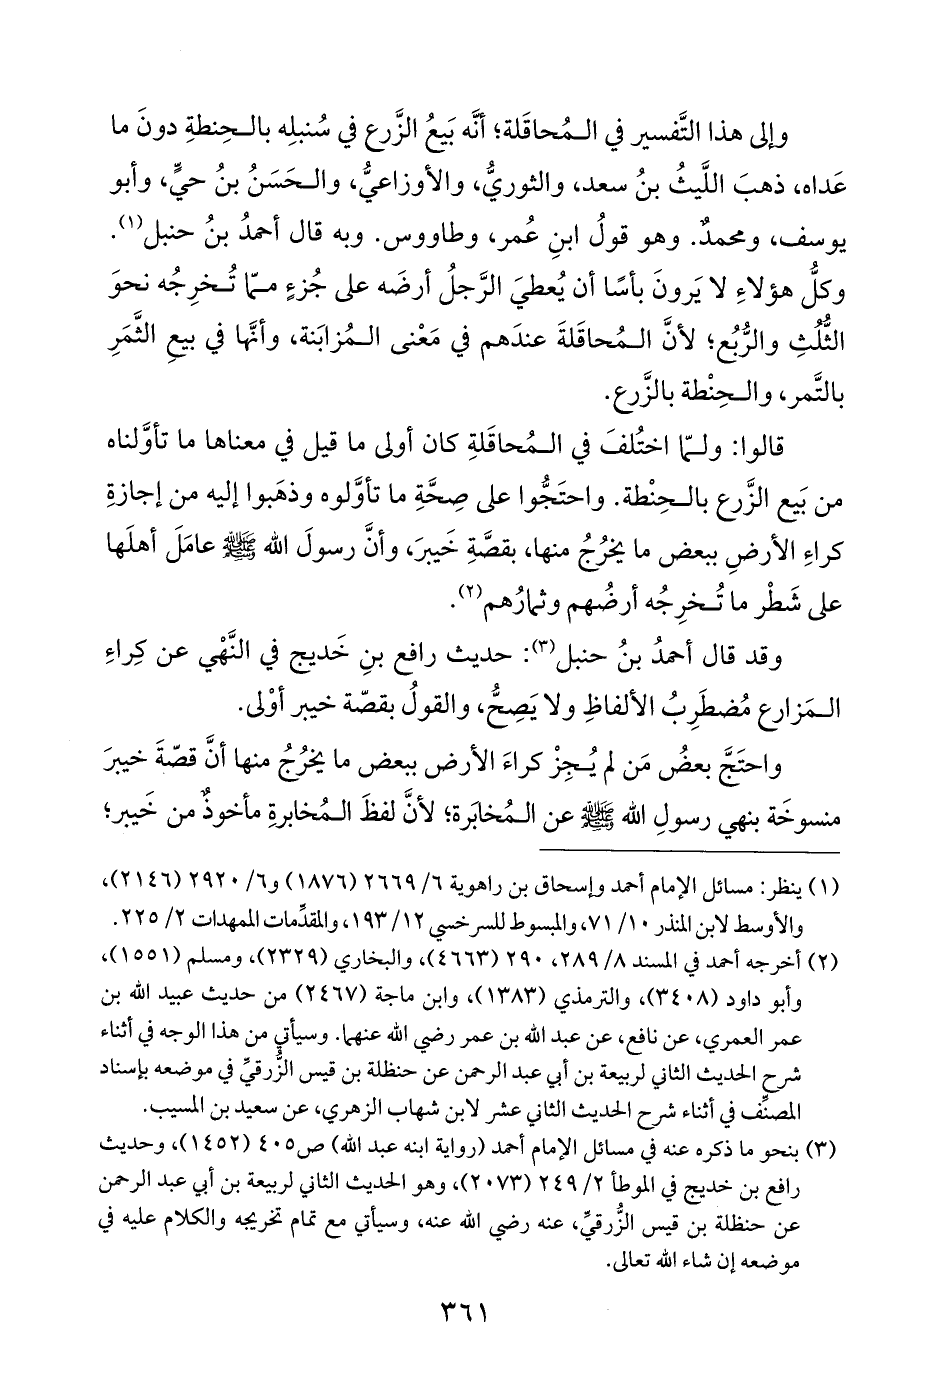 وإلى هذا التَّفسير في الـمُحاقَلة؛ أنَّه بَيعُ الزَّرع في سُنبلِه بالـحِنطةِ دونَ ما
عَداه، ذهبَ اللَّيثُ بنُ سعد، والثوريُّ، والأوزاعيُّ، والـحَسَنُ بنُ حيٍّ، وأبو
يوسف، ومحمدٌ. وهو قولُ ابنِ عُمر، وطاووس. وبه قال أحمدُ بنُ حنبل(١).
وكلُّ هؤلاءِ لا يَرونَ بأسًا أن يُعطيَ الرَّجلُ أرضَه على جُزءٍ ممّا تُـخرِجُه نحوَ
الثُّلُثِ والرُّبُع؛ لأنَّ الـمُحاقَلةَ عندَهم في مَعْنى الـمُزابَنة، وأنَّها في بيعِ الثَّمَرِ
بالتَّمر، والـحِنْطة بالزَّرع.
قالوا: ولـمّا اختُلفَ في الـمُحاقَلةِ كان أولى ما قيل في معناها ما تأوَّلناه
من بَيع الزَّرع بالـحِنْطة. واحتَجُّوا على صِحَّةِ ما تأوَّلوه وذهَبوا إليه من إجازةِ
كراءِ الأرضِ ببعض ما يخرُجُ منها، بقصَّةِ خَيبرَ، وأنَّ رسولَ الله ﷺ عامَلَ أهلَها
على شَطْر ما تُـخرِجُه أرضُهم وثمارُهم(٢).
وقد قال أحمدُ بنُ حنبل(٣): حديث رافع بنِ خَديج في النَّهْي عن كِراءِ
الـمَزارع مُضطَرِبُ الألفاظِ ولا يَصِحُّ، والقولُ بقصّة خيبر أوْلى.
واحتَجَّ بعضُ مَن لم يُـجِزْ كراءَ الأرض ببعض ما يخرُجُ منها أنَّ قصّةَ خيبرَ
منسوخَة بنهي رسولِ الله ﷺ عن الـمُخابَرة؛ لأنَّ لفظَ الـمُخابرةِ مأخوذٌ من خَيبر؛
(١) ينظر: مسائل الإمام أحمد وإسحاق بن راهوية ٦/ ٢٦٦٩ (١٨٧٦) و٦/ ٢٩٢٠ (٢١٤٦)،
والأوسط لابن المنذر ١٠/ ٧١، والمبسوط للسرخسي ١٢/ ١٩٣، والمقدِّمات الممهدات ٢/ ٢٢٥.
(٢) أخرجه أحمد في المسند ٨/ ٢٨٩، ٢٩٠ (٤٦٦٣)، والبخاري (٢٣٢٩)، ومسلم (١٥٥١)،
وأبو داود (٣٤٠٨)، والترمذي (١٣٨٣)، وابن ماجة (٢٤٦٧) من حديث عبيد الله بن
عمر العمري، عن نافع، عن عبد الله بن عمر رضي الله عنهما. وسيأتي من هذا الوجه في أثناء
شرح الحديث الثاني لربيعة بن أبي عبد الرحمن عن حنظلة بن قيس الزُّرقيِّ في موضعه بإسناد
المصنِّف في أثناء شرح الحديث الثاني عشر لابن شهاب الزهري، عن سعيد بن المسيب.
(٣) بنحو ما ذكره عنه في مسائل الإمام أحمد (رواية ابنه عبد الله) ص٤٠٥ (١٤٥٢)، وحديث
رافع بن خديج في الموطأ ٢/ ٢٤٩ (٢٠٧٣)، وهو الحديث الثاني لربيعة بن أبي عبد الرحمن
عن حنظلة بن قيس الزُّرقيِّ، عنه رضي الله عنه، وسيأتي مع تمام تخريجه والكلام عليه في
موضعه إن شاء الله تعالى.
٣٦١